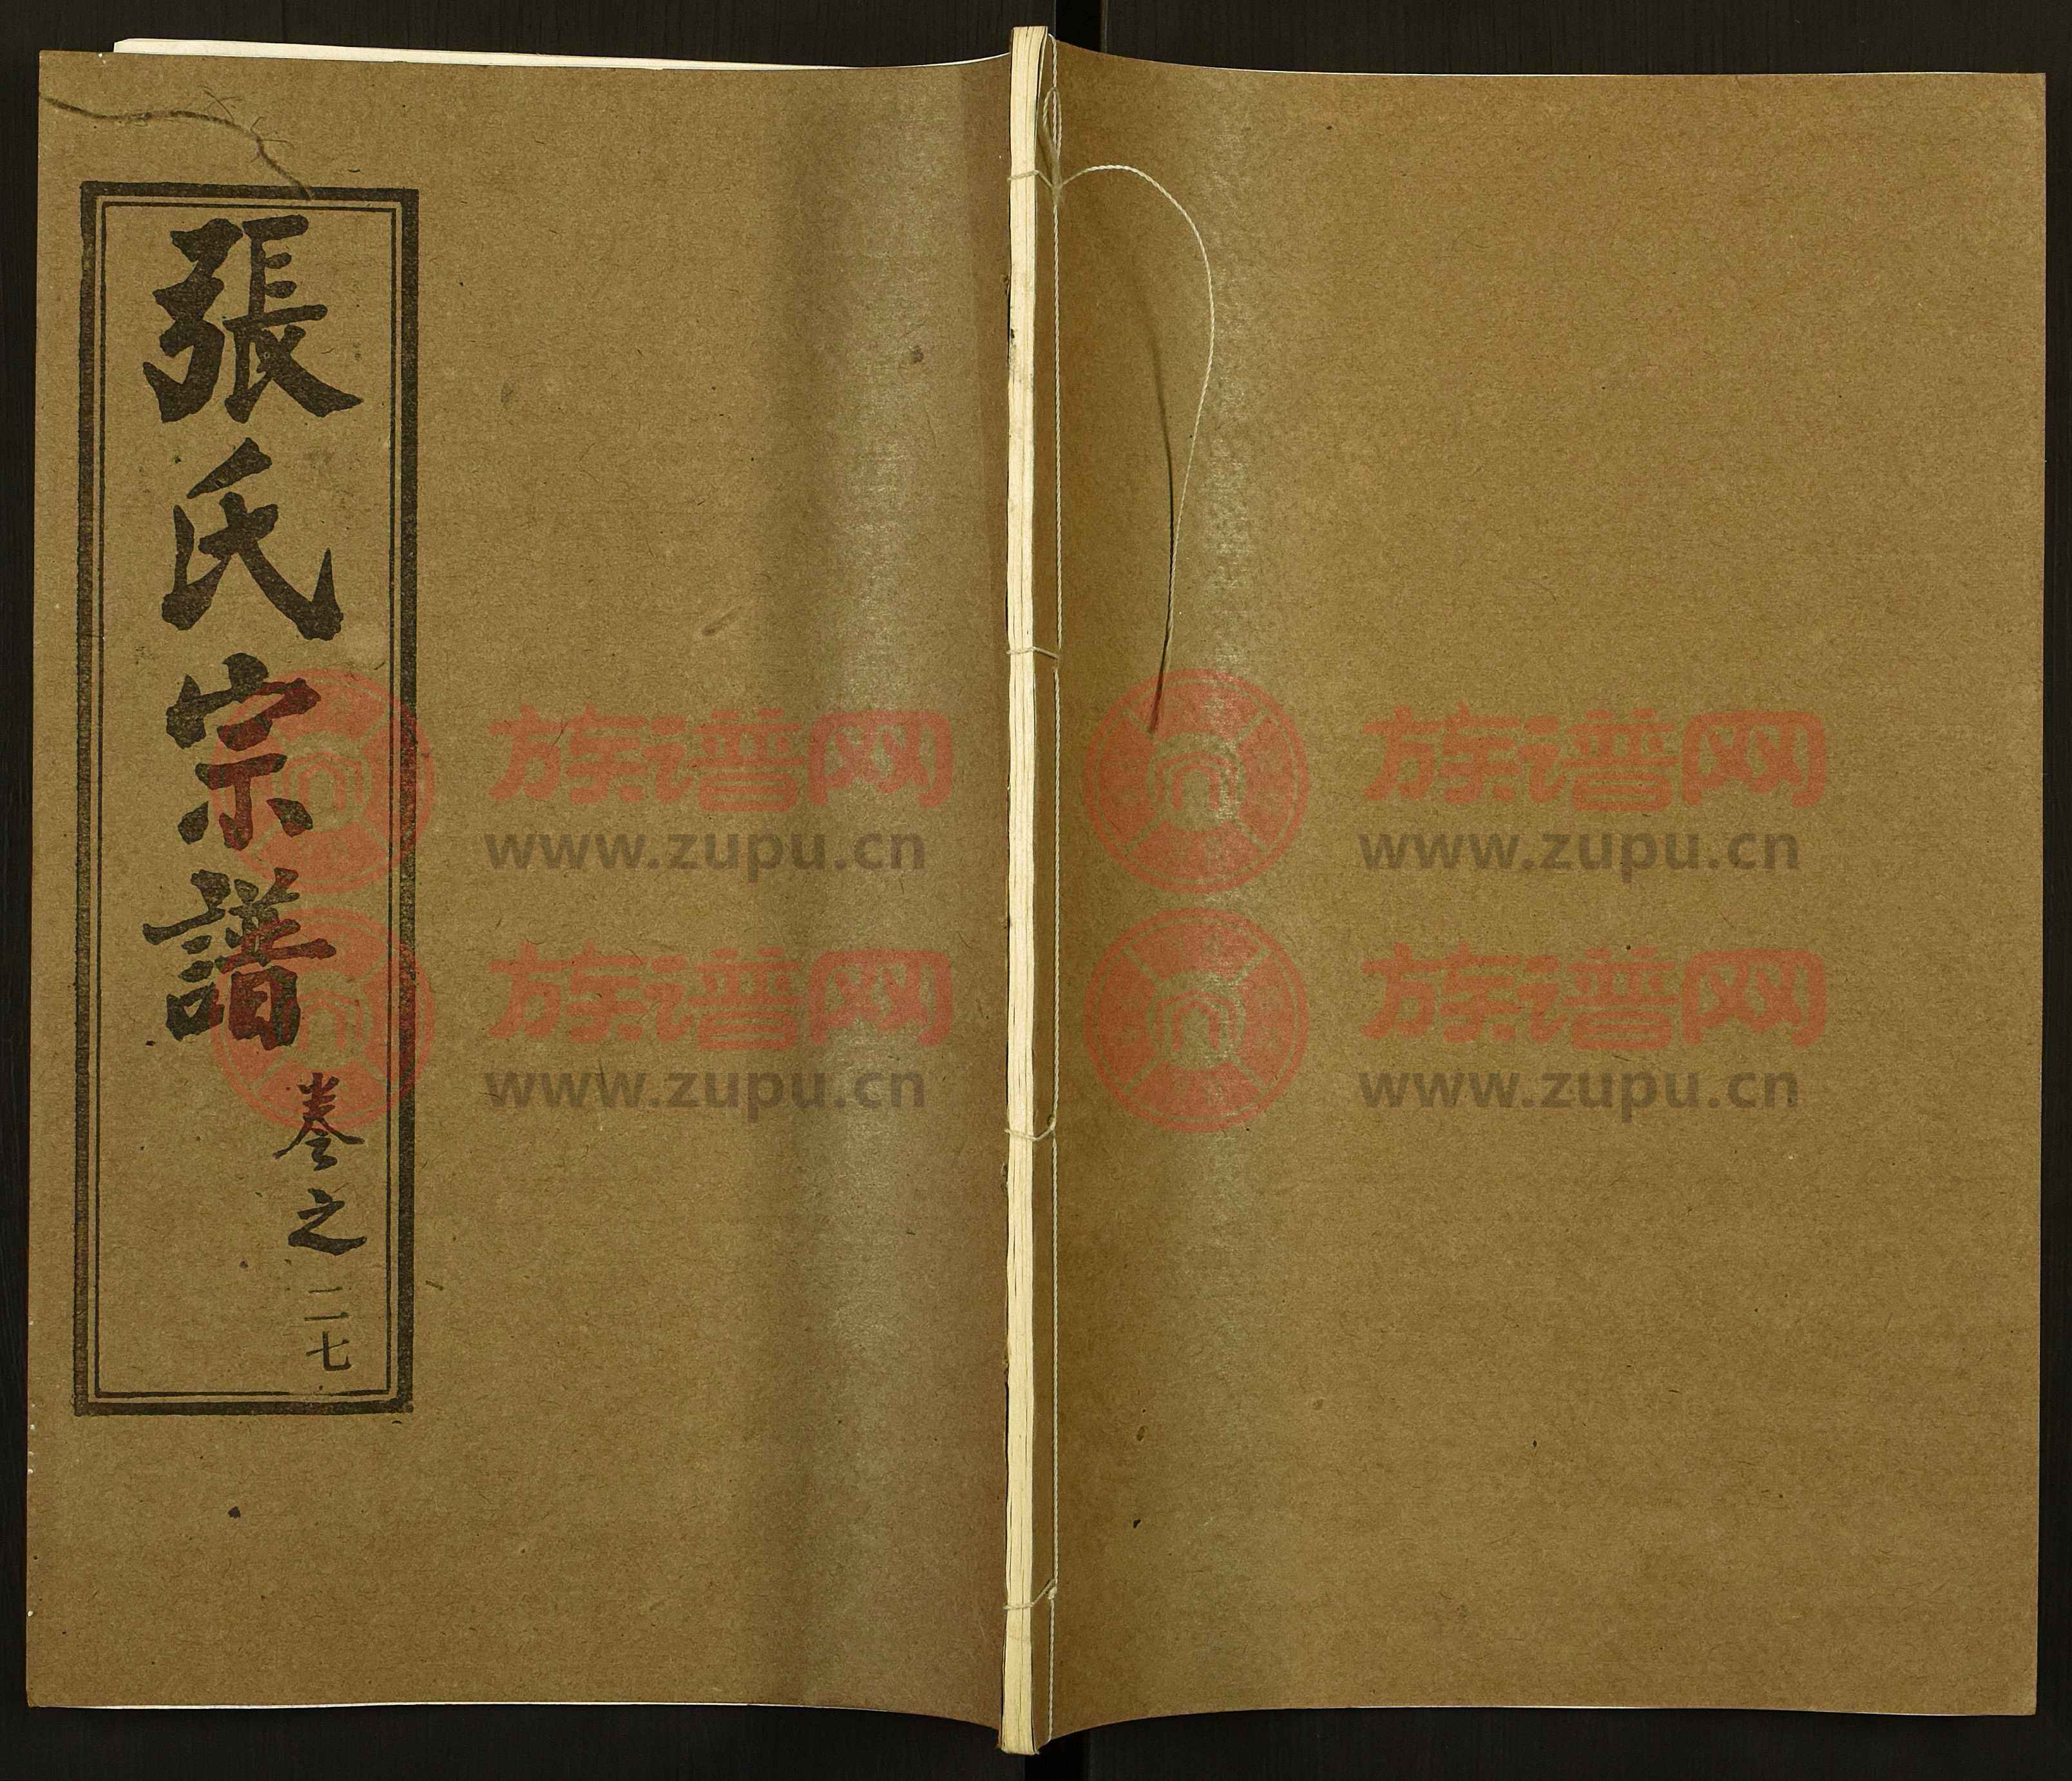 張氏宗譜
卷之二七
族谱网
www.zupu.cn
族谱网
www.zupu.cn
族谱网
www.zupu.cn
族谱网
www.zupu.cn